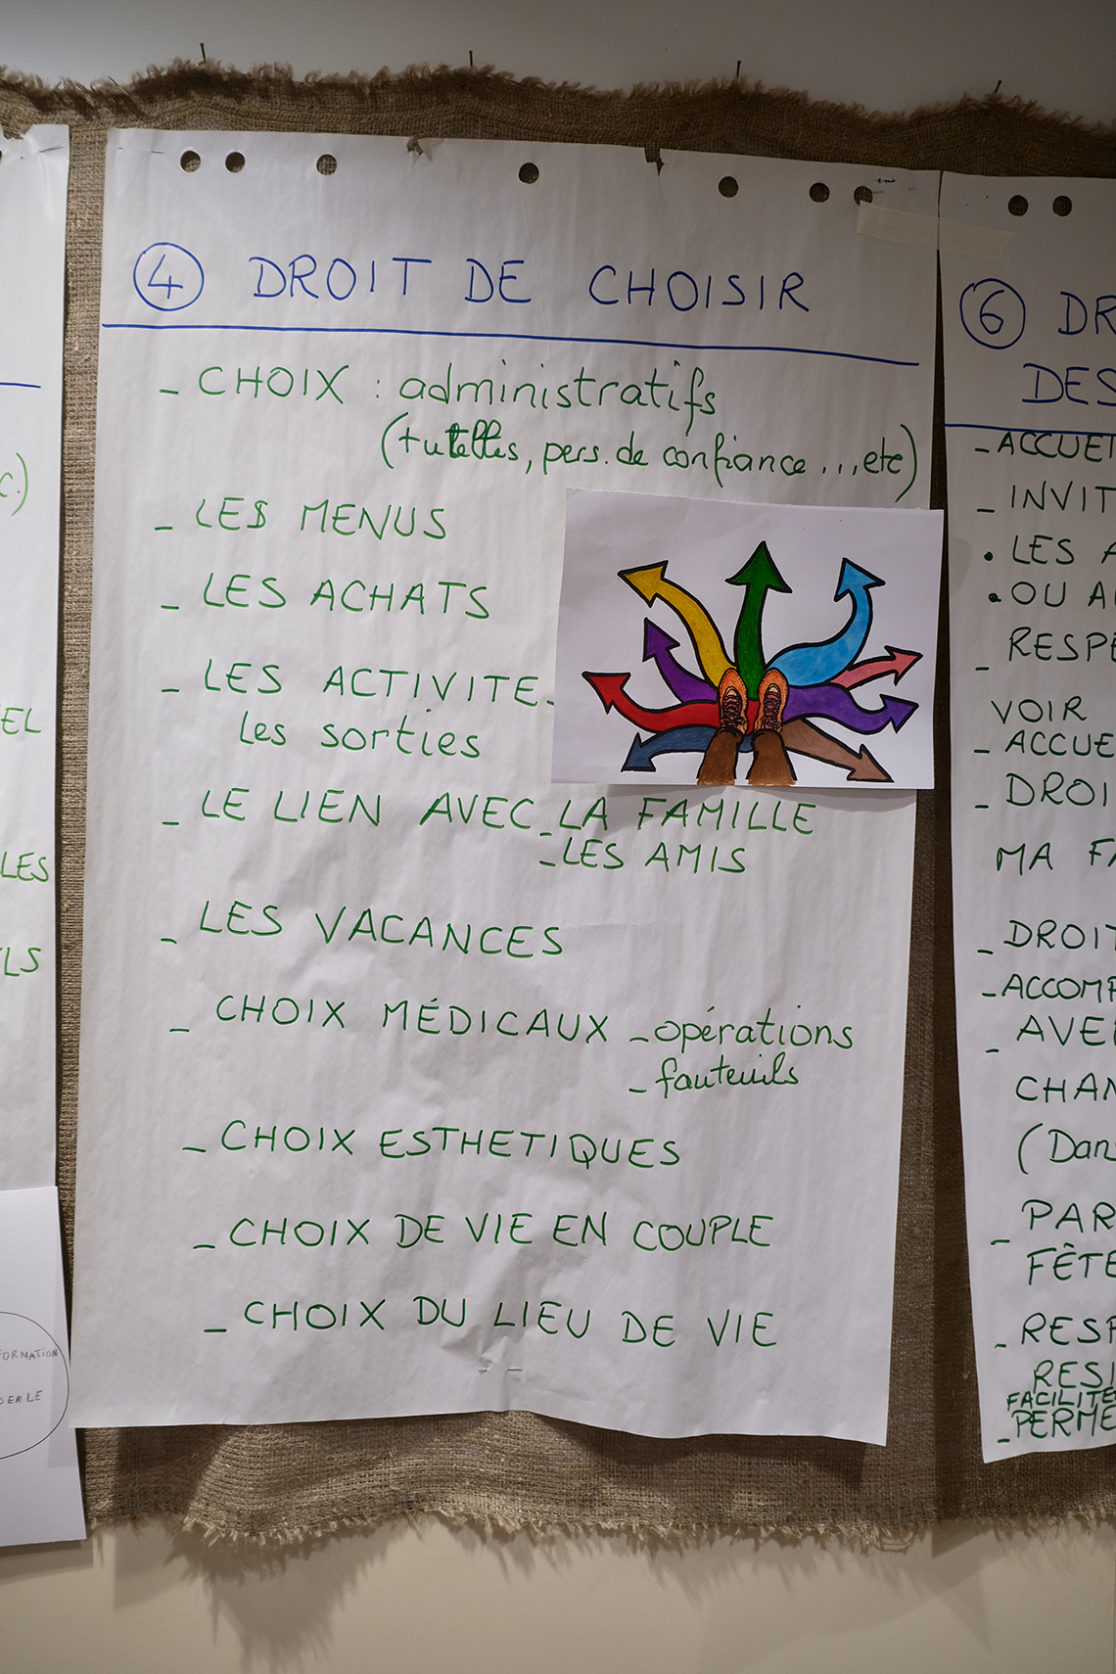 ④ DROIT DE CHOISIR
- CHOIX : administratifs
(tutelles, pers. de confiance ... etc)
- LES MENUS
- LES ACHATS
- LES ACTIVITE
les sorties
- LE LIEN AVEC - LA FAMILLE
- LES AMIS
- LES VACANCES
- CHOIX MÉDICAUX - opérations
- fauteuils
- CHOIX ESTHETIQUES
- CHOIX DE VIE EN COUPLE
- CHOIX DU LIEU DE VIE
c.)
EL
LES
LS
FORMATION
DER LE
⑥ DR
DES
- ACCUEI
- INVIT
• LES A
• OU AU
- RESPE
VOIR
- ACCUE
- DROI
MA FA
- DROIT
- ACCOMP
- AVE
CHAN
(Dan
- PAR
FÊTE
- RESP
RESI
FACILITE
- PERME